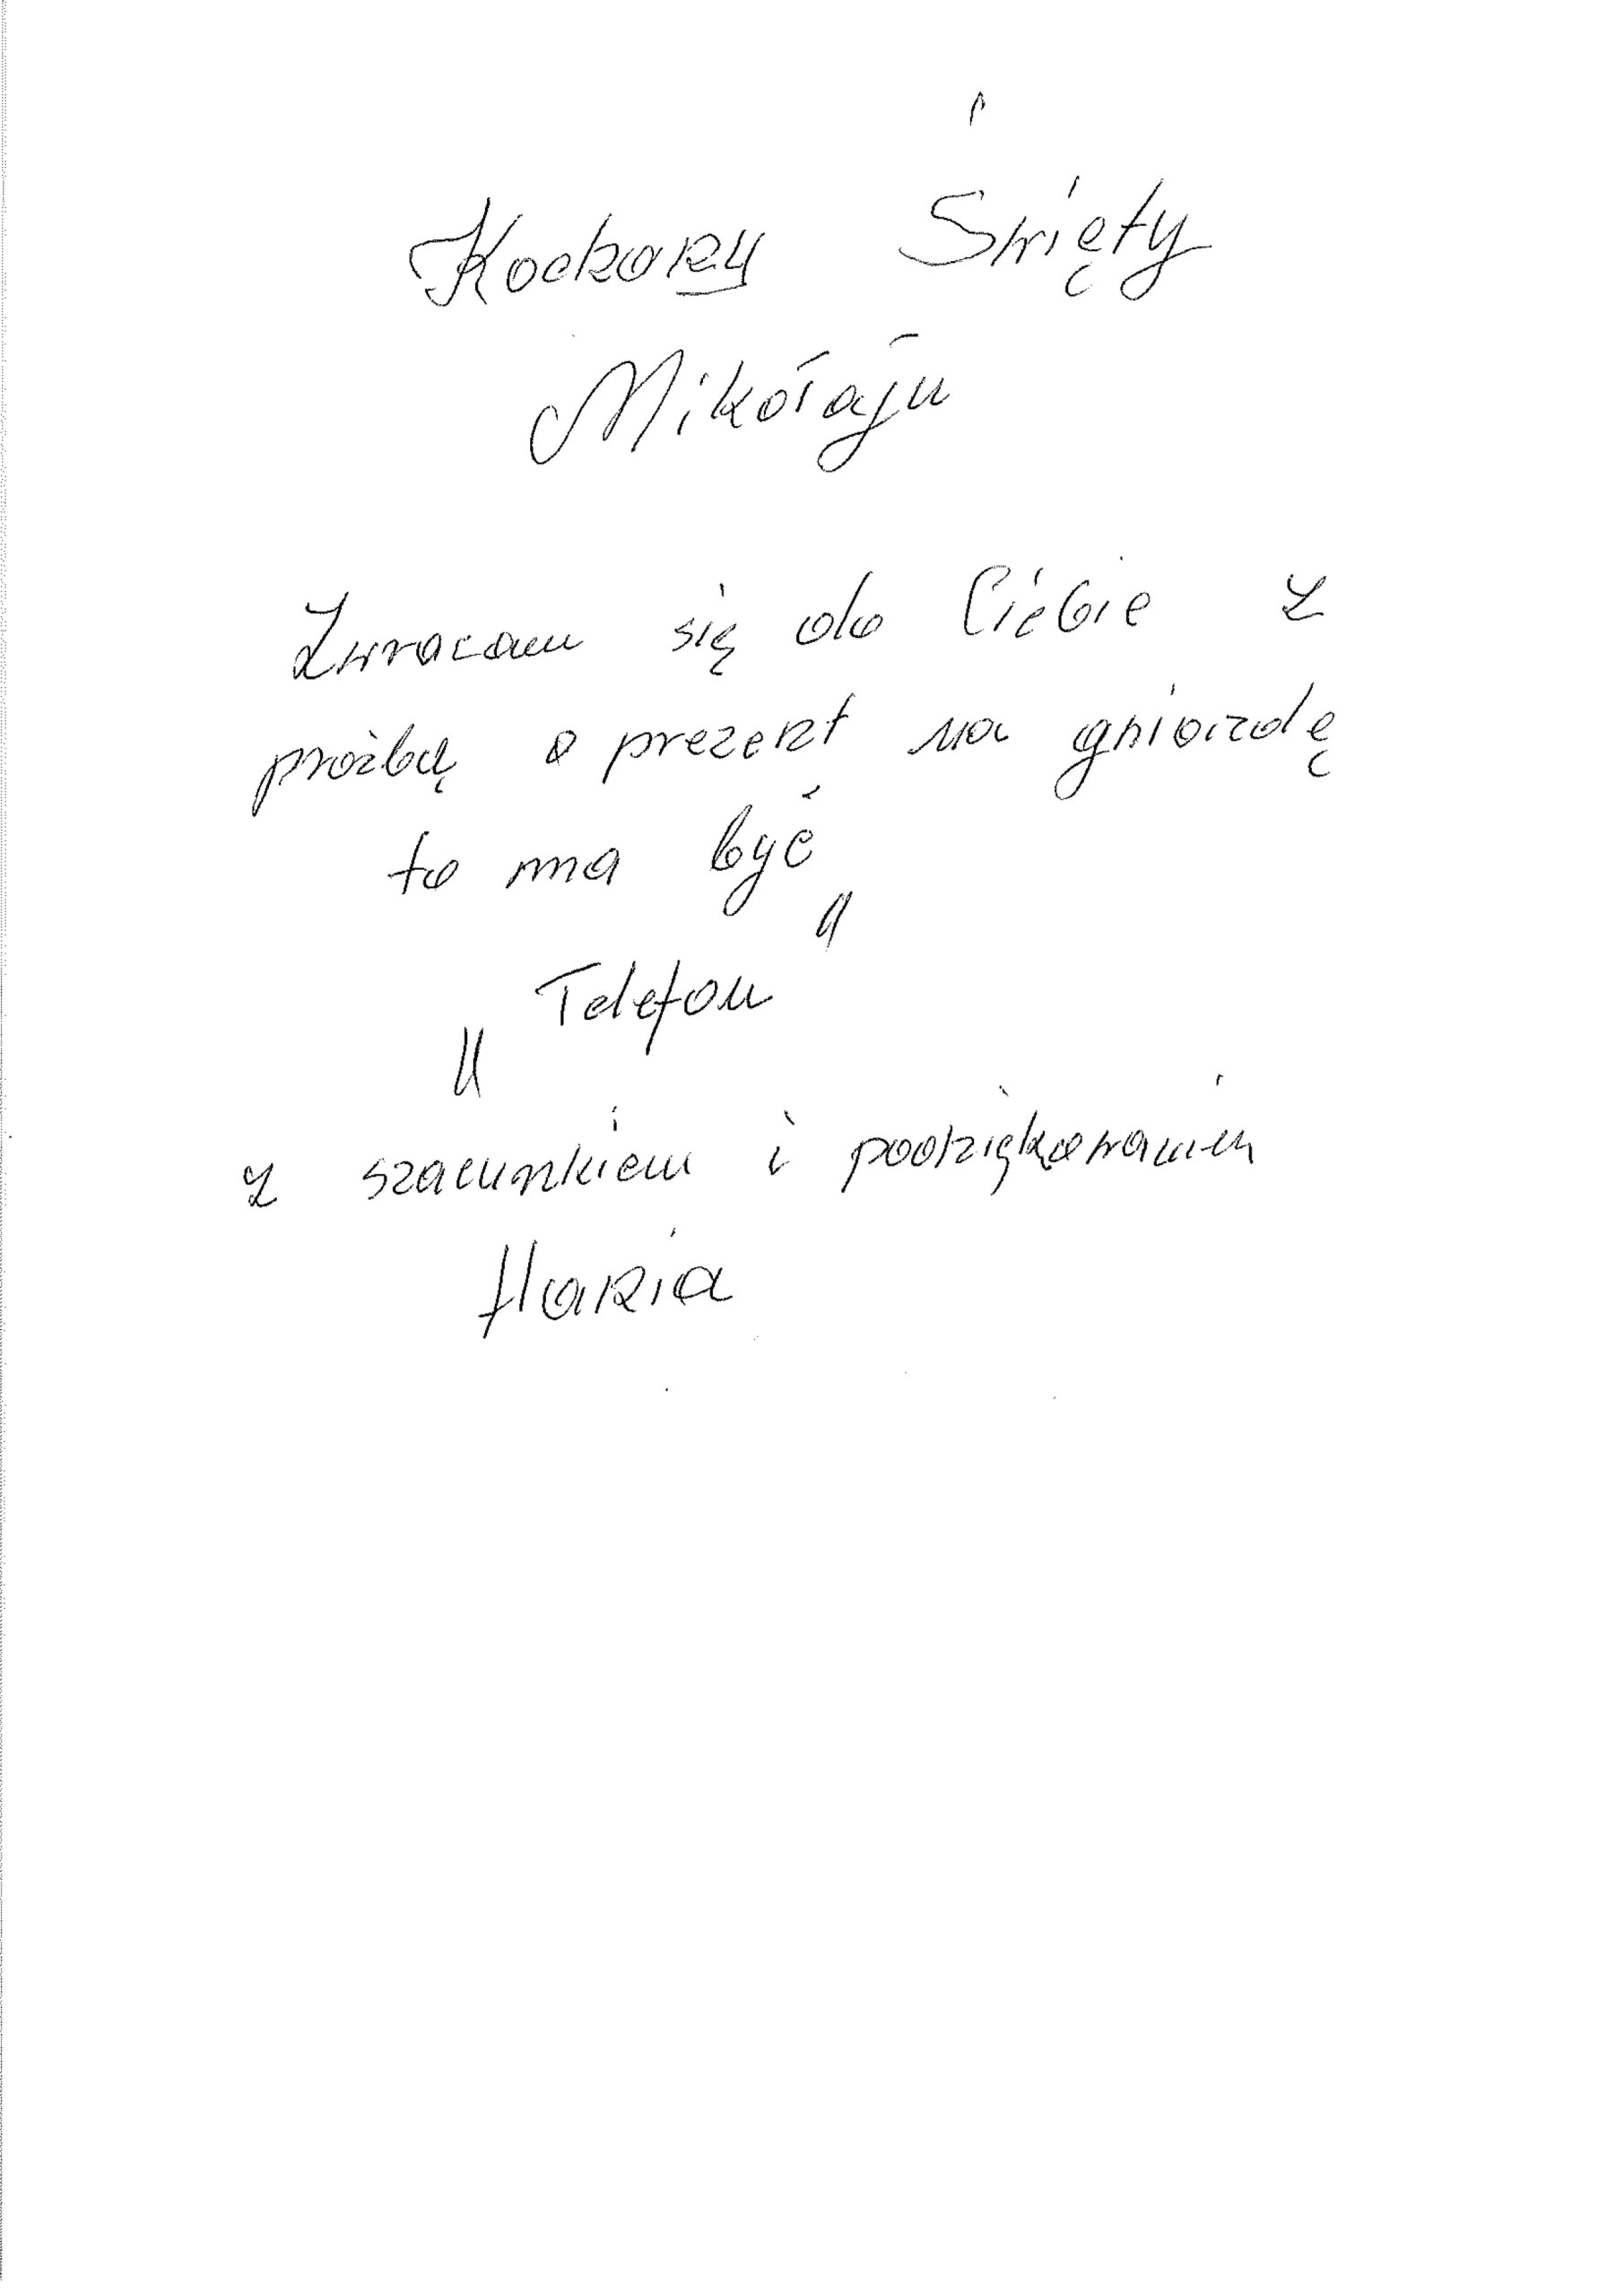 Kochany Święty
Mikołaju
Zwracam się do Ciebie z
proźbą o prezent na gwiazdę
to ma być
„Telefon"
z szacunkiem i podziękowaniem
Maria